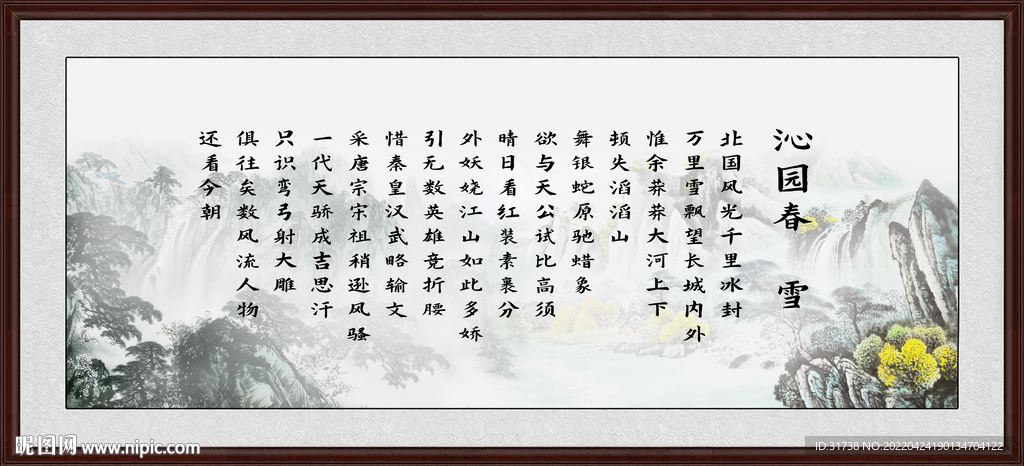 沁园春 雪
北国风光千里冰封
万里雪飘望长城内外
惟余莽莽大河上下
顿失滔滔山
舞银蛇原驰蜡象
欲与天公试比高须
晴日看红裝素裹分
外妖娆江山如此多娇
引无数英雄竞折腰
惜秦皇汉武略输文
采唐宗宋祖稍逊风骚
一代天骄成吉思汗
只识弯弓射大雕
俱往矣数风流人物
还看今朝
昵图网 www.nipic.com
ID:31738 NO:20220424190134704122